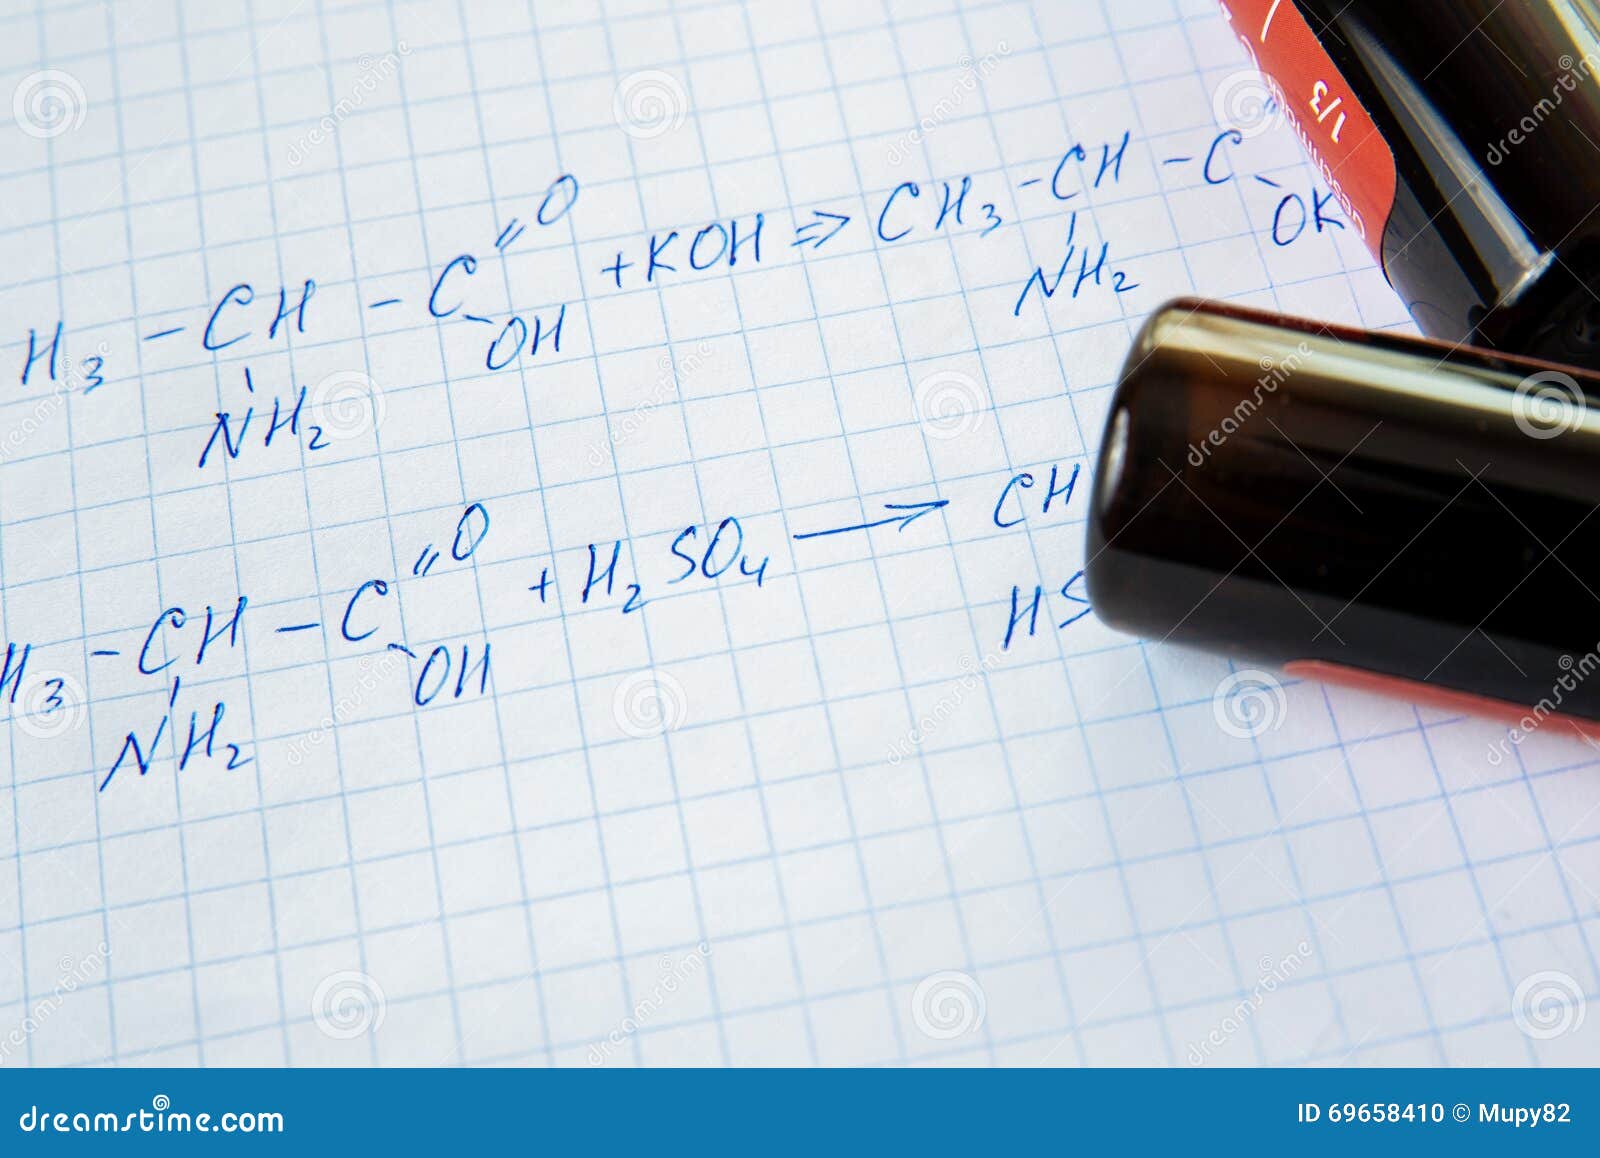 H₃ – CH – C =O –OH + KOH ⇒ CH₃ – CH – C " – OK
NH₂ NH₂
H₃ – CH – C =O –OH + H₂SO₄ → CH
NH₂ HS
1/3
dreamstime.com
ID 69658410 © Mupy82